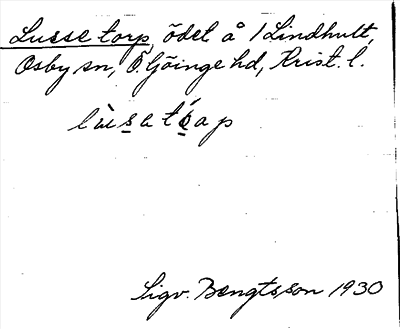 Lussetorp, ödet å 1 Lindhult,
Osby sn, Ö. Göinge hd, Krist. l.
Sigv. Bengtsson 1930